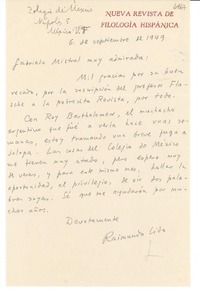 Colegio de México
Nápoles 5
México D F
NUEVA REVISTA DE
FILOLOGÍA HISPÁNICA
6 de septiembre de 1949
Gabriela Mistral muy admirada:
Mil gracias por su buen
recado, por la suscripción del profesor
a la pobrecita Revista, por todo.
Con Roy Bartholomew, el muchacho
argentino que fué a verla hace unas se-
manas, estoy tramando una breve fuga a
Jalapa. Las cosas del Colegio de México
me tienen muy atado, pero espero muy
de veras, y para este mismo mes, hallar la
oportunidad, el privilegio, de oír dos pala-
bras suyas. Sé que me ayudarán por mu-
chos años.
Devotamente
Raimundo Lida